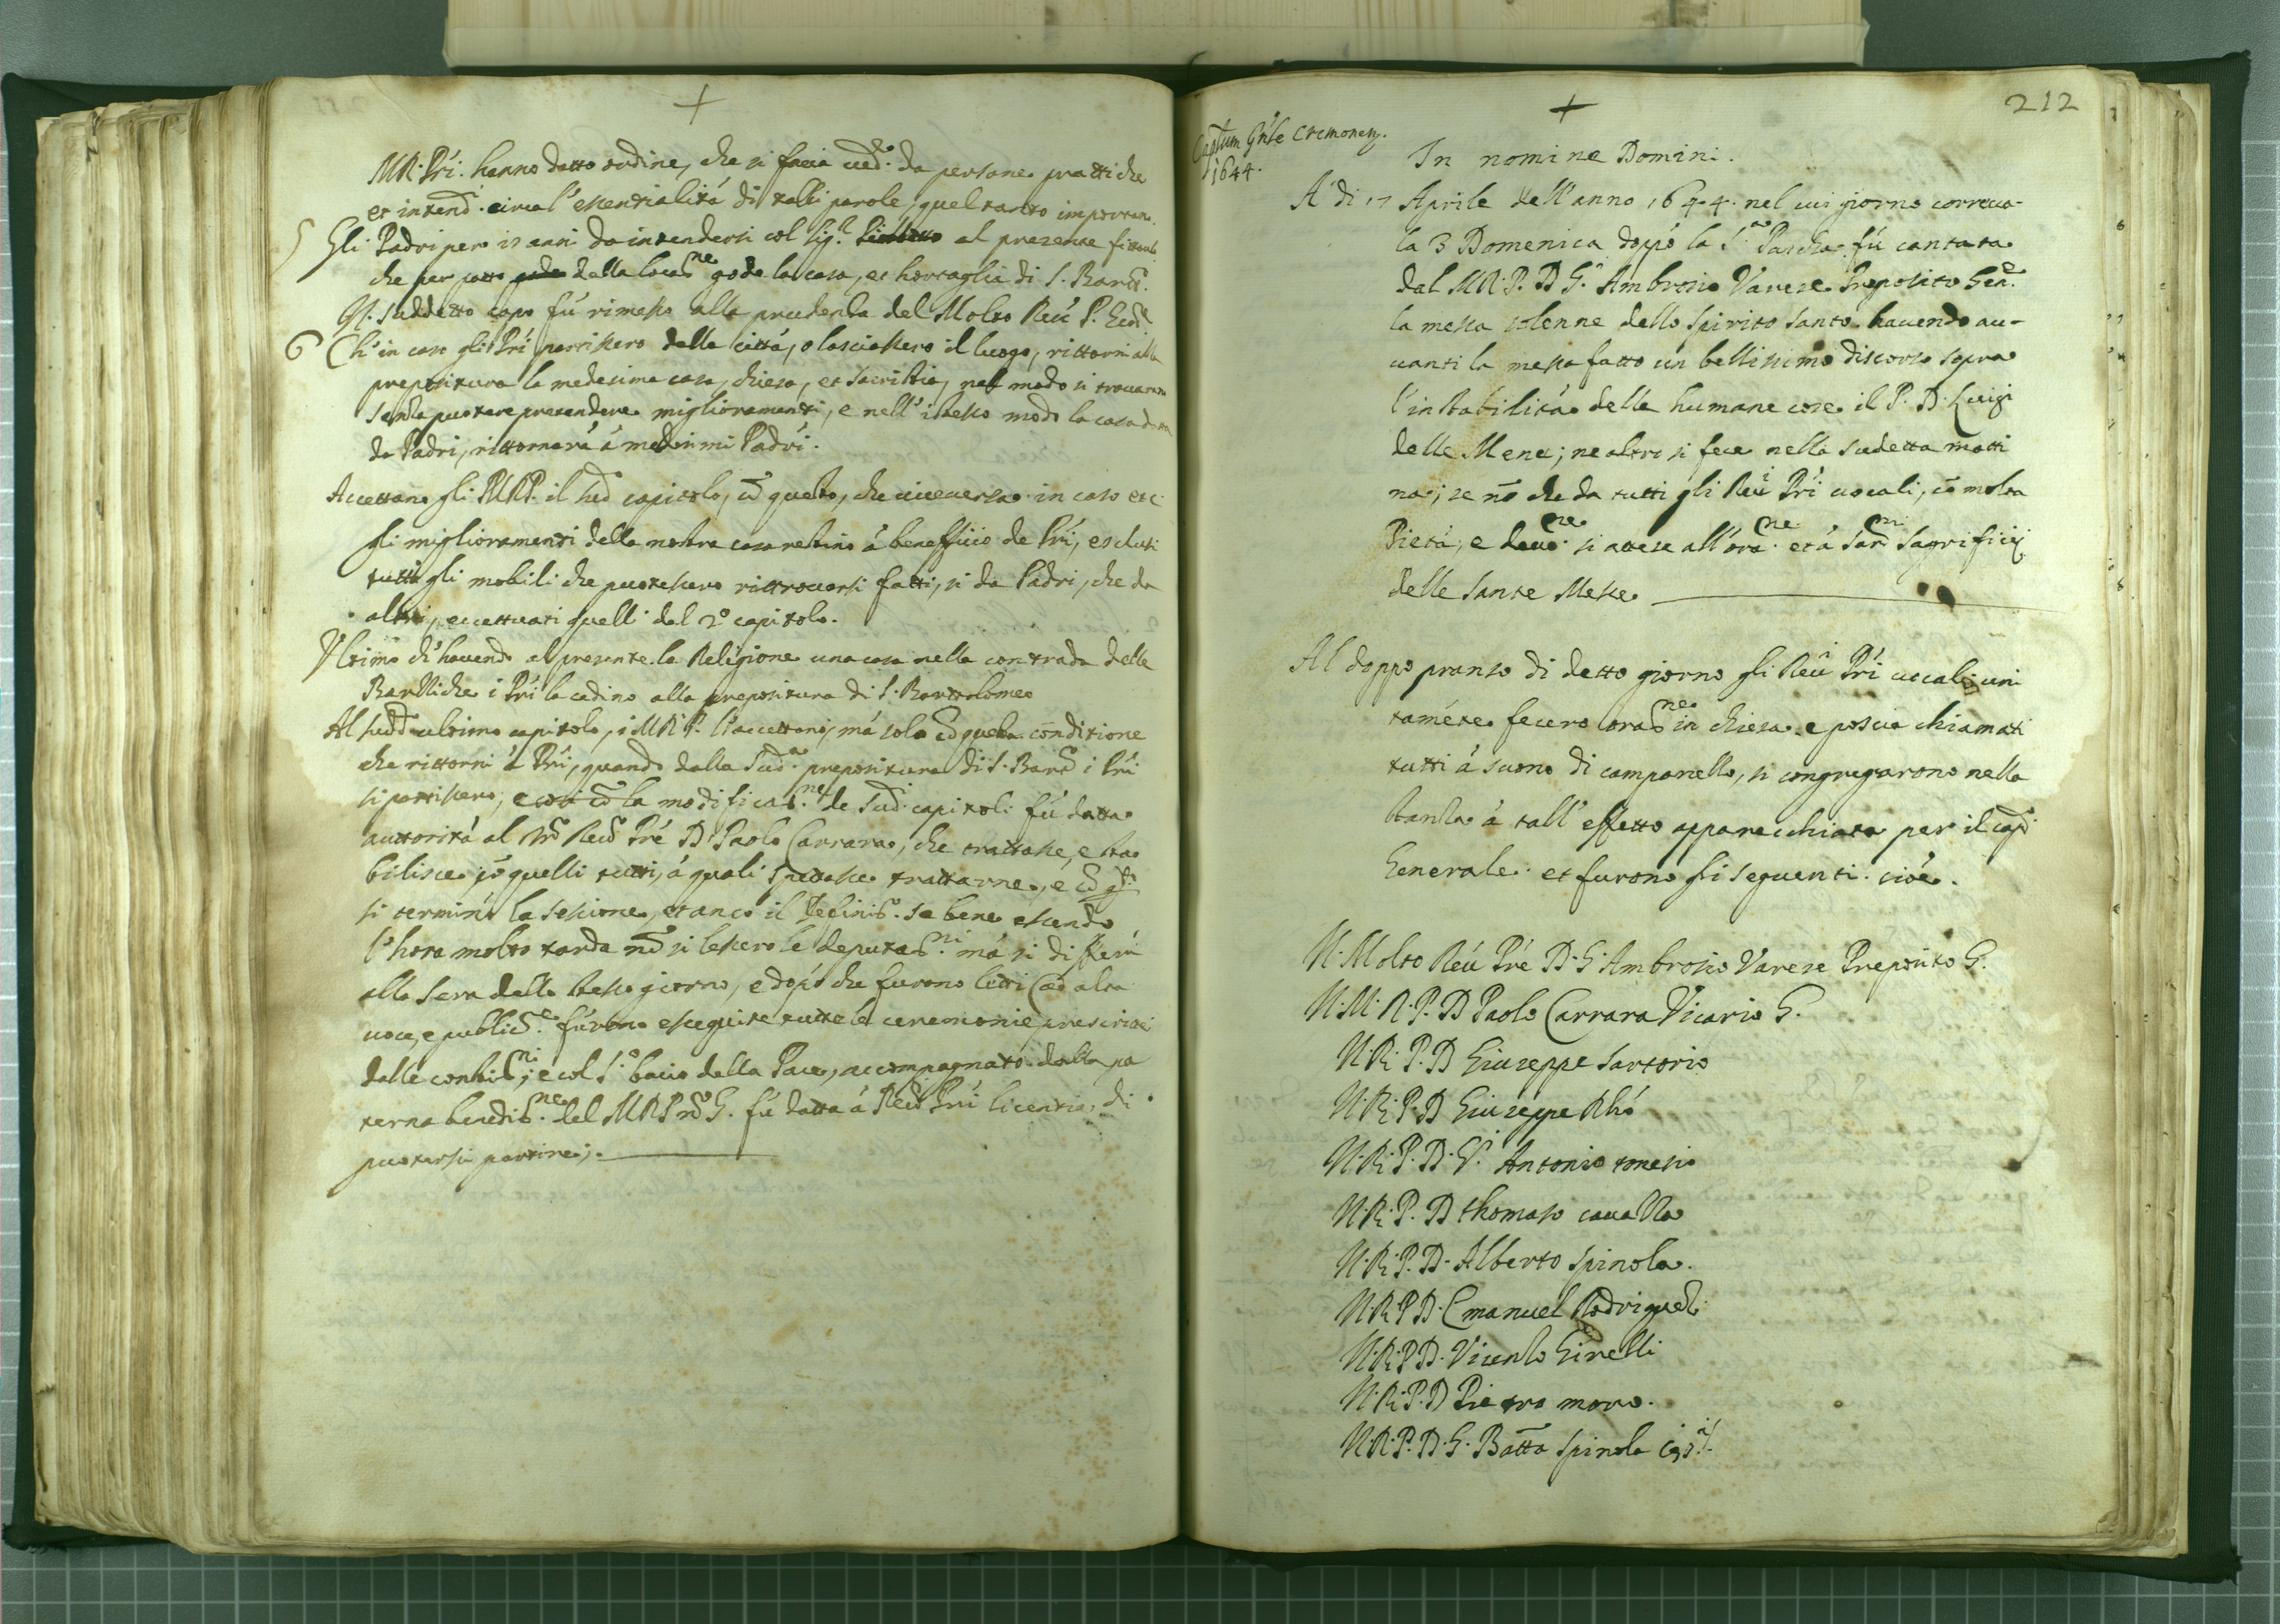 M R Pri hanno datto ordine, che si facia ved.e da persone prattiche
et intend. circa l'essentialità di talli parole, quel tanto
5 Gli Padri per 12 anni da intendersi col Sig.r al presente
che per patto della locat.ne gode la casa, et hortaglia di S. Bart.o
Il suddetto capo fù rimesso alla prudenza del Molto Reu. P.
6 Ch'in caso gli Pri partissero della città, o lasciassero il luogo, rittorni alla
prepositura la medesima casa, chiesa, et sacristia, nel modo si trovarano
senza puotere pretendere miglioramenti, e nell'istesso modo la casa
da Padri, rittornarà à medesimi Padri.
Accettano gli PMRP. il sud.o capitolo, cō questo, che viceversa in caso etc.
gli miglioramenti della nostra casa restino à benefficio de Pri, esclusi
tutti gli mobili che puotessero rittrovarsi fatti, si da Padri, che da
altri, eccettuati quelli del 2º capitolo.
Vltimo ch'havendo al presente la Religione una casa nella contrada delle
i Pri la cedino alla prepositura di S. Bartolomeo
Al sud.o ultimo capitolo, i M R P. l'accettano, mà solo cō questa conditione
che rittorni à Pri, quando dalla Sud.a prepositura di S. Bart.o i Pri
si partissero; e così cō la modificat.ne de Sud.i capitoli fù datta
auttorità al M.o Reu.o Pre D. Paolo Carrara, che trattasse, e sta
bilisce cō quelli tutti, à quali spettasse trattarne, e cō q.to
si terminò la sessione, et anco il Definit.o se bene essendo
l'hora molto tarda nō si lessero le deputat.ni mà si differì
alla sera dello stesso giorno, e dopò che furono letti ad alta
voce, e public.e furono esseguite tutte le ceremonie prescritte
dalle constit.ni, e col S.o bacio della Pace, accompagnato dalla pa
terna bened.ne del M R P. G. fù datta à Reu.di Pri licentia, di
puotersi partire;.
212
Captum Gn̄le Cremonen.
1644.
In nomine Domini.
A' di 17 Aprile dell'anno 1644. nel cui giorno correva
la 3 Domenica doppò la S.a Pascha fù cantata
dal M R. P. D G. Ambrosio Varese Preposito Gen.e
la messa solenne dello Spirito Santo. havendo au-
vanti la messa fatto un bellissimo discorso sopra
l'instabilità delle humane cose il P. D. Luigi
delle Mene; ne altro si fece nella sudetta matti
na; se nō che da tutti gli Reu.i Pri vocali, cō molta
Pietà, e devo.ne si attese all'ora.ne et à San.mi Sagrificij
delle Sante Messe
Al doppo pranso di detto giorno gli Reu.i Pri vocali uni
tamēte fecero orat.ne in chiesa e poscia chiamati
tutti à suono di campanello, si congregarono nella
stanza à tall'effetto apparecchiata per il cap.o
Generale et furono gli seguenti. cioè.
Il Molto Reu. Pre D. G. Ambrosio Varese Preposito G.
Il M. R. P. D Paolo Carrara Vicario G.
Il R. P. D Giuseppe Sartorio
Il R. P. D Giuseppe Rhò
Il R. P. D. G. Antonio
Il R. P. D Thomaso cavalla
Il R. P. D. Alberto Spinola.
Il R. P D. Emanuel Rodriguez
Il R. P D. Vicenzo Girelli
Il R. P. D Pietro moro.
Il R. P. D. G. Batta Spinola